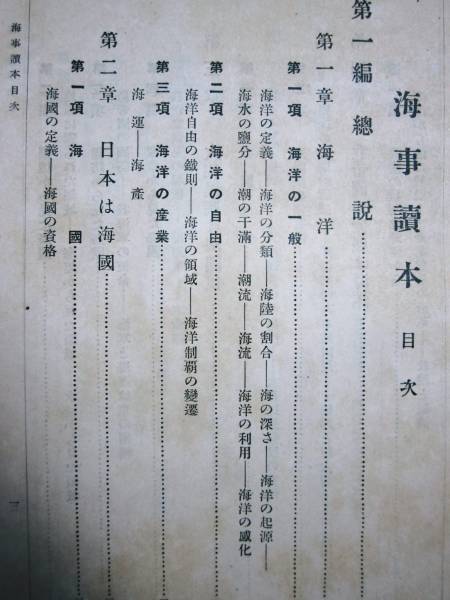 海事讀本 目次
第一編 總說
第一章 海洋
第一項 海洋の一般
海洋の定義――海洋の分類――海陸の割合――海の深さ――海洋の起源――
海水の鹽分――潮の干滿――潮流――海流――海洋の利用――海洋の感化
第二項 海洋の自由
海洋自由の鐵則――海洋の領域――海洋制覇の變遷
第三項 海洋の産業
海運――海産
第二章 日本は海國
第一項 海國
海國の定義――海國の資格
海事讀本目次
一